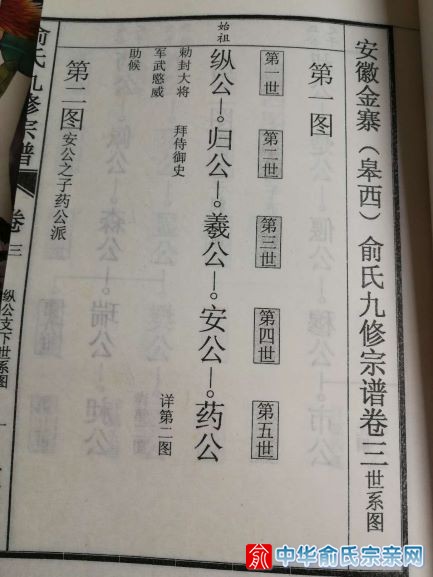 安徽金寨（皋西）俞氏九修宗谱卷三世系图
第一图
第一世
第二世
第三世
第四世
第五世
始祖
纵公—归公—羲公—安公—药公
敕封大将
军武愍威
助候
拜侍御史
详第二图
第二图 安公之子药公派
俞氏九修宗谱
卷三
纵公支下世系图
一
俞 中华俞氏宗亲网